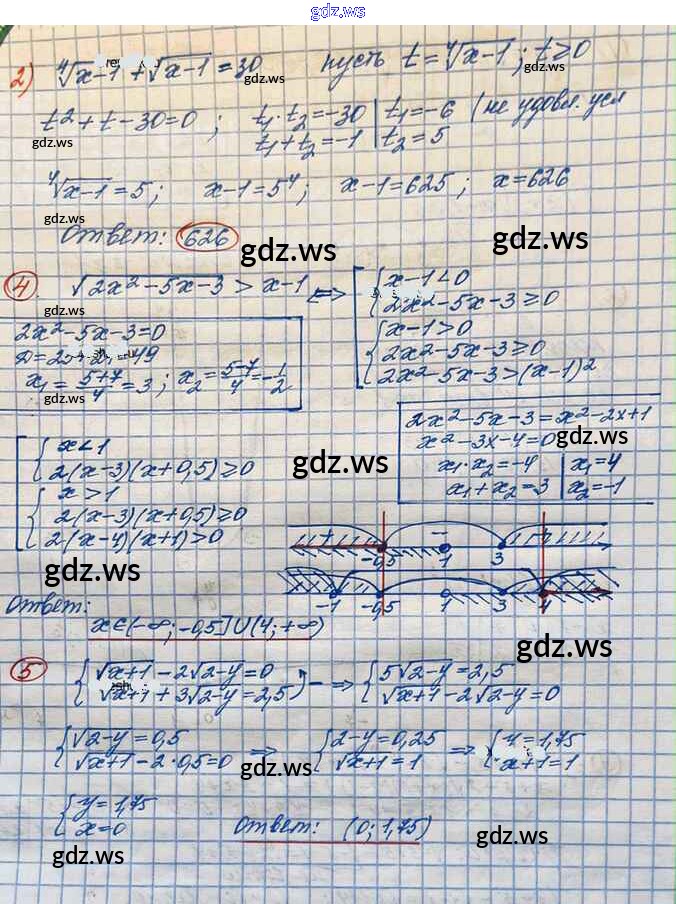 gdz.ws
2) ⁴√x-1 + √x-1 = 30 пусть t = ⁴√x-1; t ≥ 0
gdz.ws gdz.ws
t² + t - 30 = 0; t₁·t₂ = -30 | t₁ = -6 (не удовл. усл
t₁ + t₂ = -1 | t₂ = 5
gdz.ws gdz.ws
⁴√x-1 = 5; x-1 = 5⁴; x-1 = 625; x = 626
gdz.ws
Ответ: 626
gdz.ws gdz.ws
4. √2x²-5x-3 > x-1 <=> [ { x-1<0
2x²-5x-3≥0
gdz.ws
{ x-1>0
2x²-5x-3≥0
2x²-5x-3>(x-1)²
2x²-5x-3=0
x₁ = 5+7/4 = 3; x₂ = 5-7/4 = -1/2
gdz.ws
2x²-5x-3=x²-2x+1
x²-3x-4=0
gdz.ws
x₁·x₂=-4 | x₁=4
x₁+x₂=3 | x₂=-1
[ { x<1
2(x-3)(x+0,5)≥0
gdz.ws
{ x>1
2(x-3)(x+0,5)≥0
2(x-4)(x+1)>0
gdz.ws
+ - +
-0,5 1 3
-1 -0,5 1 3 4
Ответ:
x∈(-∞;-0,5]∪(4;+∞)
gdz.ws
5 { √x+1 - 2√2-y = 0
√x+1 + 3√2-y = 2,5 ) - => { 5√2-y = 2,5
√x+1 - 2√2-y = 0
{ √2-y = 0,5
√x+1 - 2·0,5 = 0 => { 2-y = 0,25
√x+1 = 1 => { y = 1,75
x+1 = 1
gdz.ws gdz.ws
{ y = 1,75
x = 0
Ответ: (0; 1,75)
gdz.ws gdz.ws